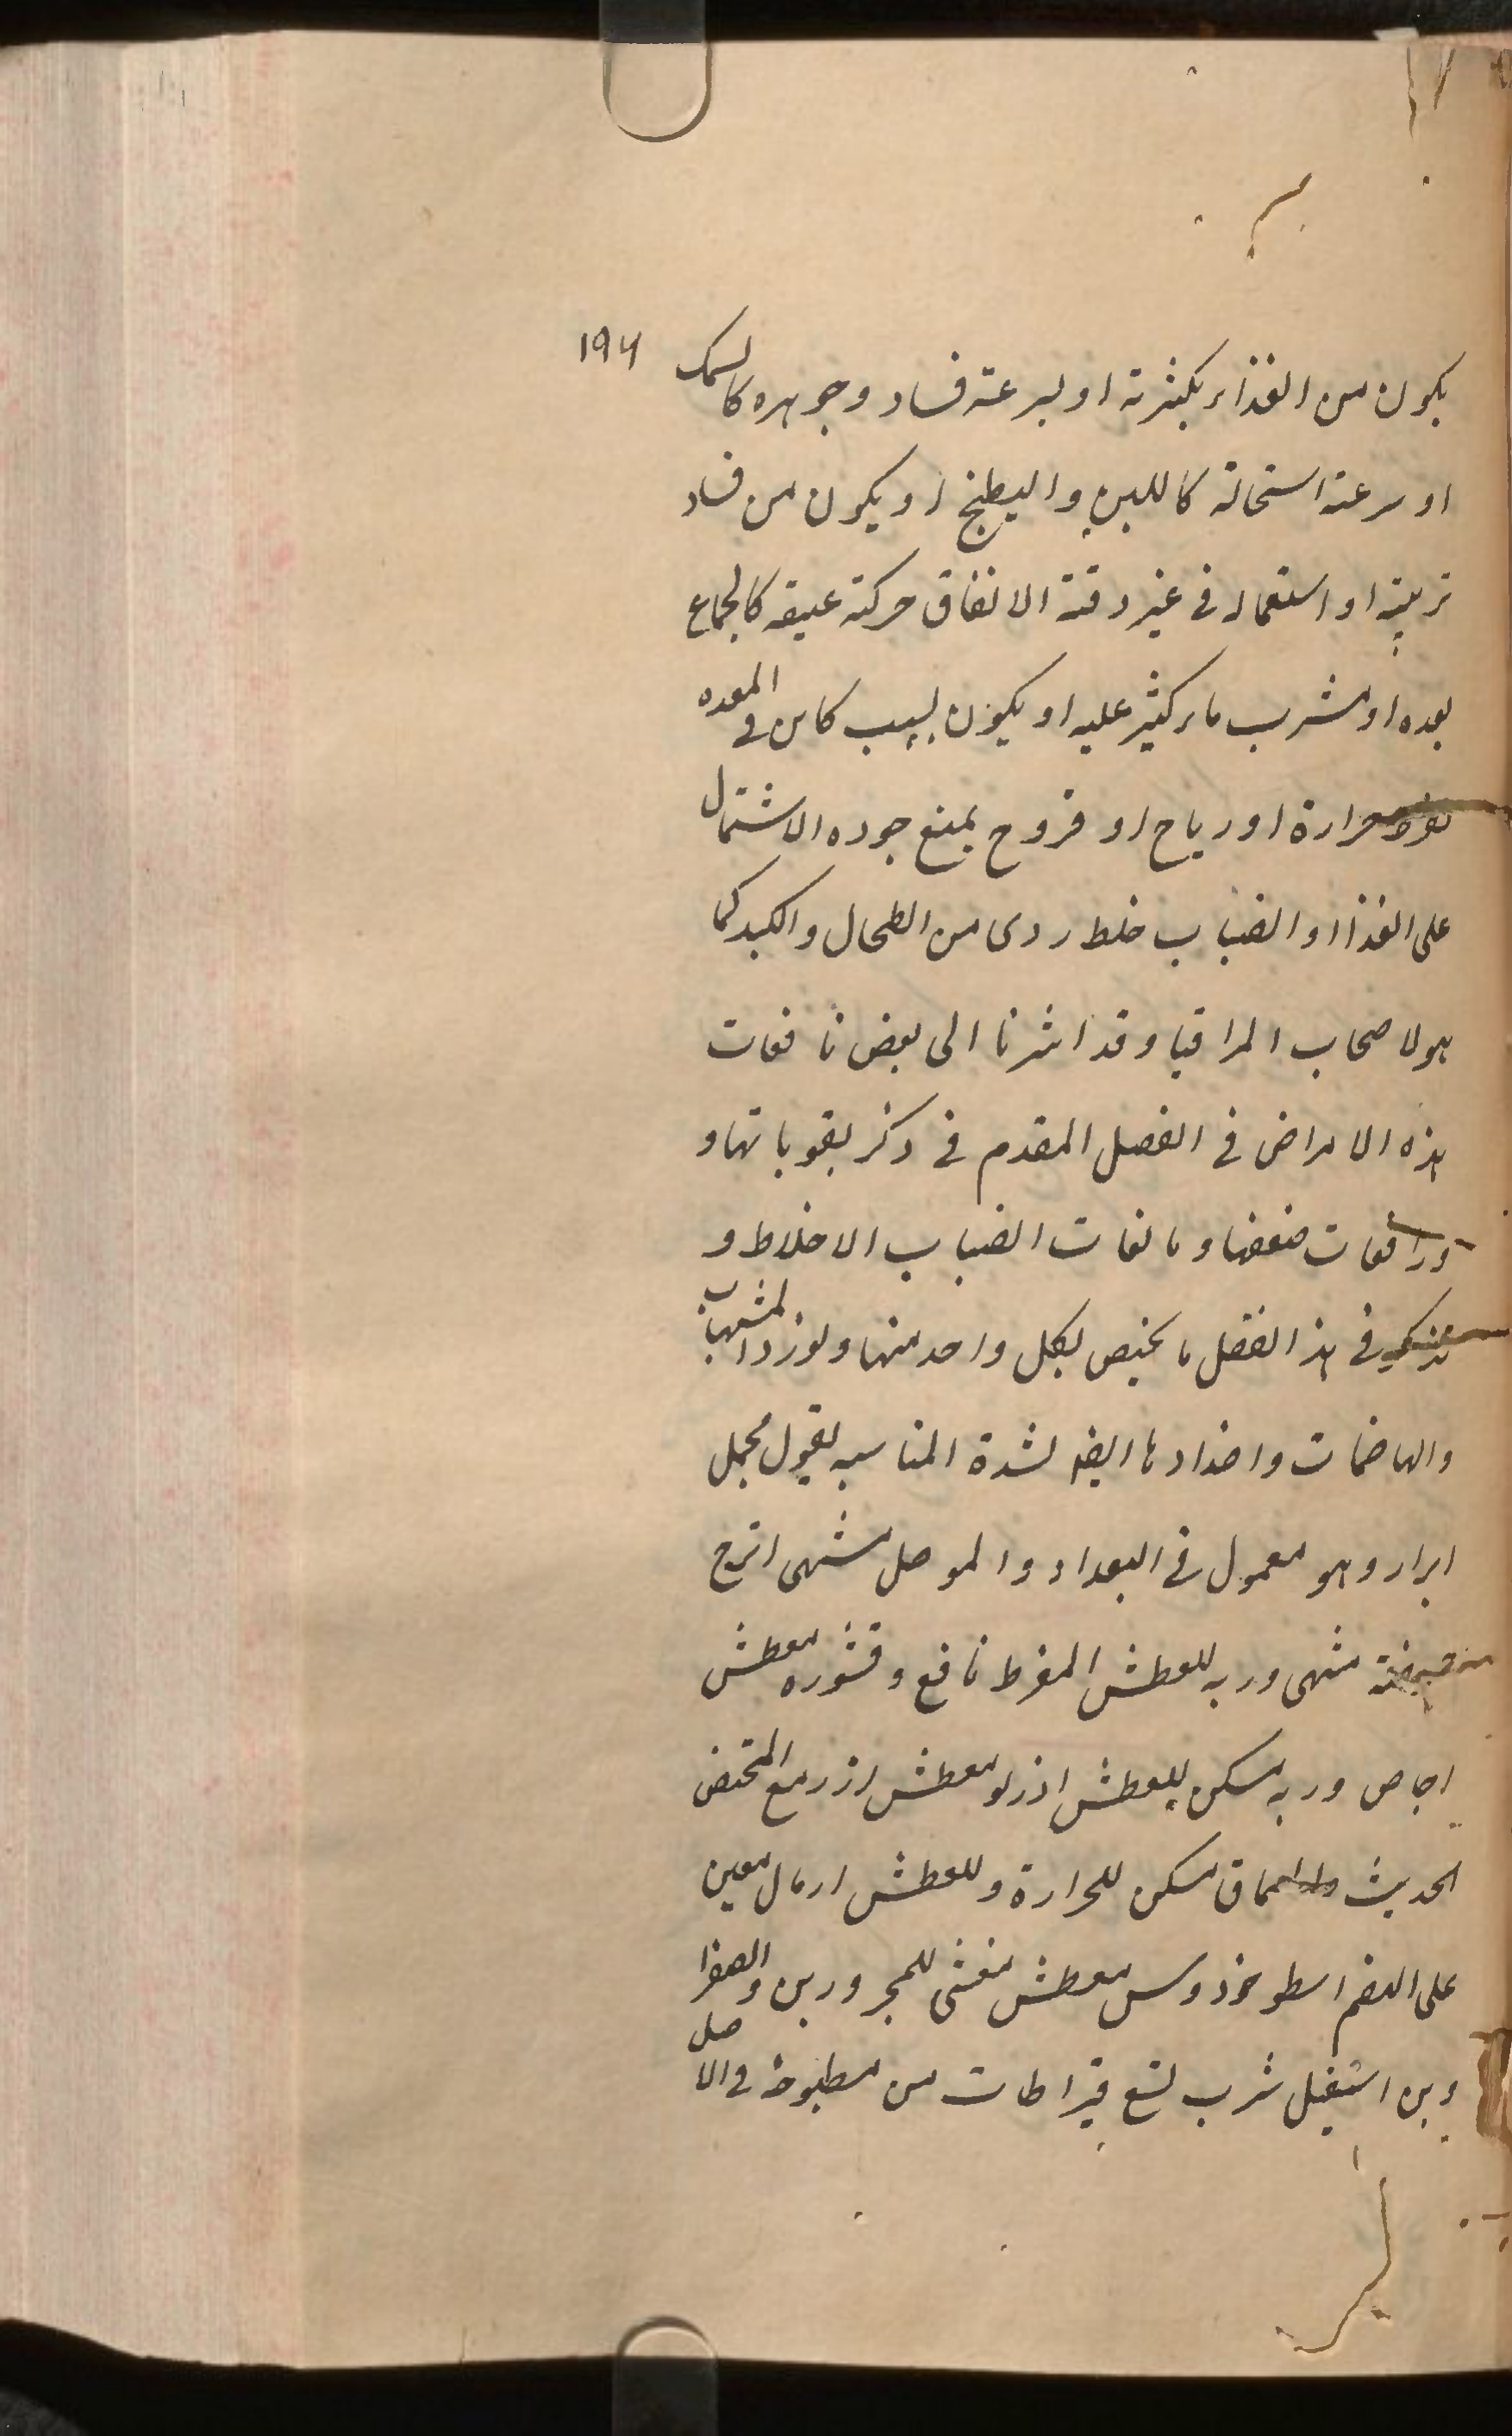 ۱۹۴
یکون من الغذاء بکثرته او لسرعة فساد وجوهره کالسمک
او سرعة استحالة کاللبن والبطیخ او یکون من فساد
ترتیبه او استعماله فی غیر وقته الانفاق حرکة عنیفه کالجماع
بعده او شرب ماء کثیر علیه او یکون بسبب کاین فی المعده
حرارة او ریاح او قروح یمنع جوده الاشتمال
علی الغذا او انصباب خلط ردی من الطحال والکبد کما
هو لاصحاب المراقیا وقد اشرنا الی بعض نافعات
هذه الامراض فی الفصل المقدم فی ذکر مقویاتها و
ورافعات ضعفها ومانعات انصباب الاخلاط و
فی هذا الفصل ما یختص بکل واحد منها ونورد المشهیات
والهاضمات واضدادها ایضا لشدة المناسبه بقول مجمل
ابرار وهو معمول فی البغداد والموصل مشهی اترج
مشهی وربه للعطش المفرط نافع وقشوره معطش
اجاص وربه مسکن للعطش اذربو معطش ارز مع المخیض
الحدیث والسماق مسکن للحرارة وللعطش ارمال معین
علی الهضم اسطوخودوس معطش مغثی للمحرورین والصفرا
وین اشقیل شرب تسع قیراطات من مطبوخه فی الاصل